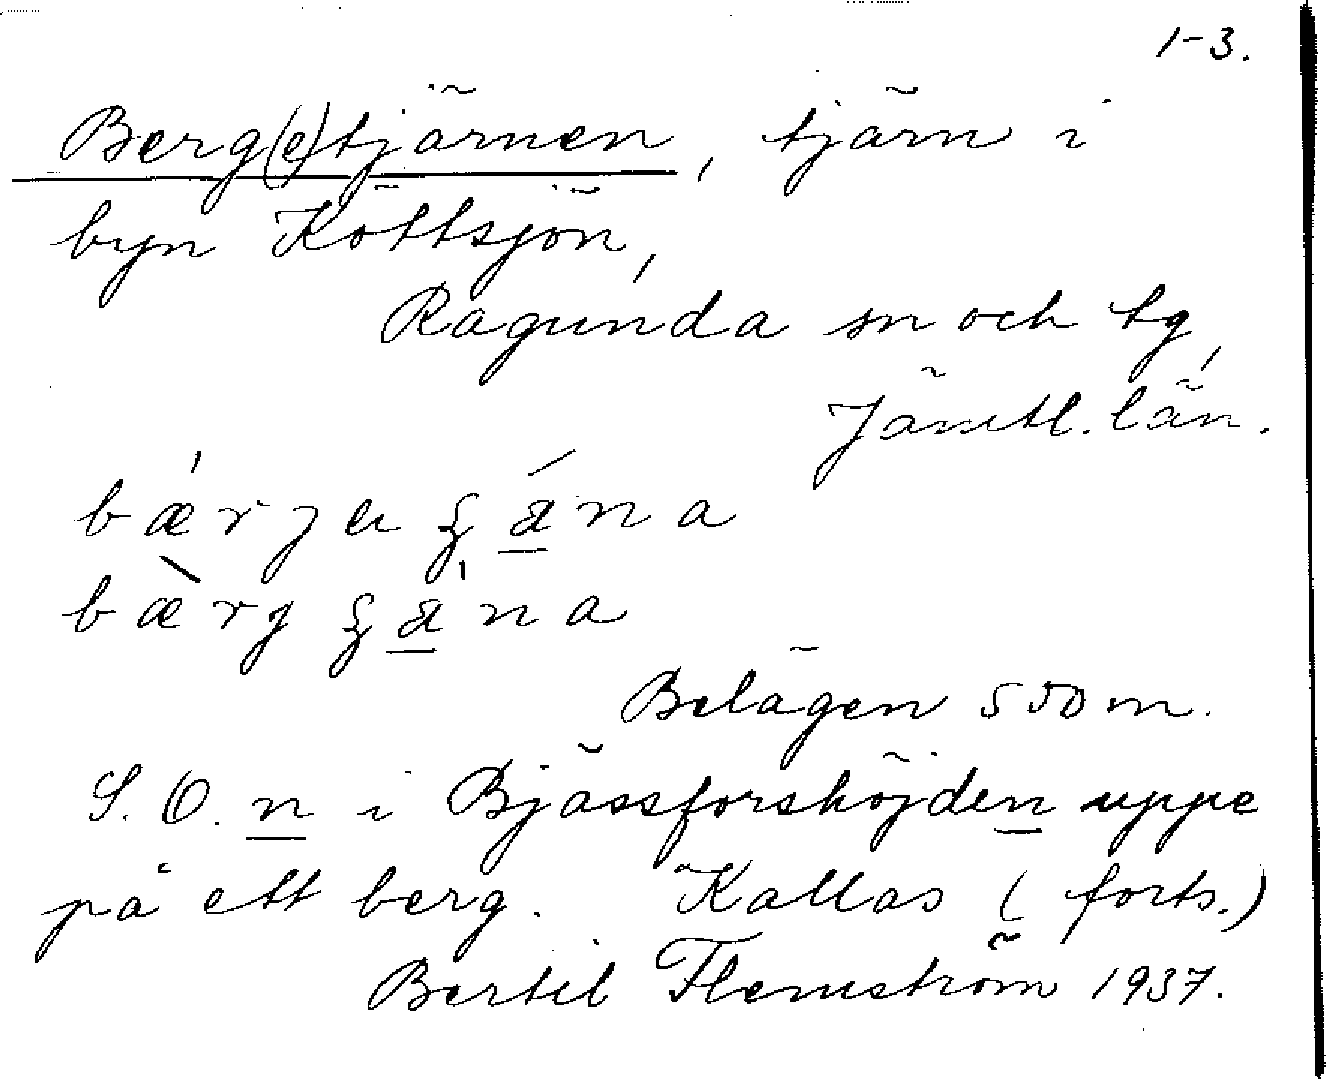 1-3.
Berg(e)tjärnen, tjärn i
byn Köttsjön,
Ragunda sn och tg,
Jämtl. län.
Belägen 550 m.
S. O. n i Bjässforshöjden uppe
på ett berg. Kallas (forts.)
Bertil Flemström 1937.